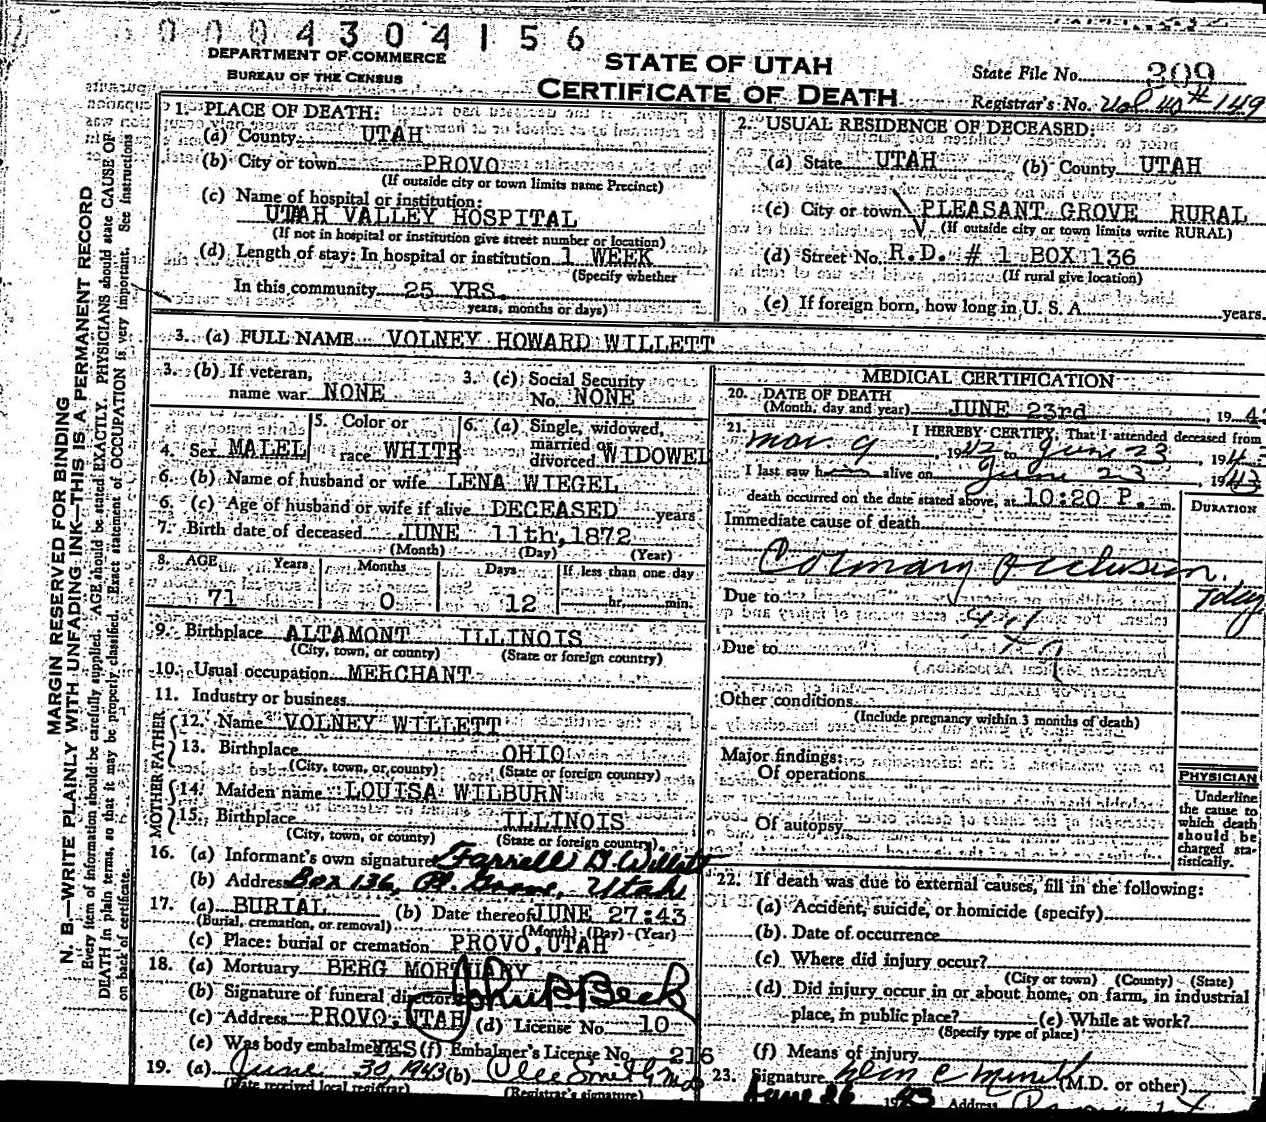 0004304156
DEPARTMENT OF COMMERCE
BUREAU OF THE CENSUS
STATE OF UTAH
CERTIFICATE OF DEATH
State File No. 309
Registrar's No. # 149
MARGIN RESERVED FOR BINDING
N. B.—WRITE PLAINLY WITH UNFADING INK—THIS IS A PERMANENT RECORD
Every item of information should be carefully supplied. AGE should be stated EXACTLY. PHYSICIANS should state CAUSE OF
DEATH in plain terms, so that it may be properly classified. Exact statement of OCCUPATION is very important. See instructions
on back of certificate.
1. PLACE OF DEATH:
(a) County UTAH
(b) City or town PROVO
(If outside city or town limits name Precinct)
(c) Name of hospital or institution:
UTAH VALLEY HOSPITAL
(If not in hospital or institution give street number or location)
(d) Length of stay: In hospital or institution 1 WEEK
(Specify whether
In this community 25 YRS.
years, months or days)
2. USUAL RESIDENCE OF DECEASED:
(a) State UTAH (b) County UTAH
(c) City or town PLEASANT GROVE RURAL
(If outside city or town limits write RURAL)
(d) Street No. R.D. # 1 BOX 136
(If rural give location)
(e) If foreign born, how long in U. S. A. years.
3. (a) FULL NAME VOLNEY HOWARD WILLETT
3. (b) If veteran,
name war NONE
3. (c) Social Security
No. NONE
4. Sex MALEL
5. Color or
race WHITE
6. (a) Single, widowed,
married or
divorced WIDOWEL
6. (b) Name of husband or wife LENA WIEGEL
6. (c) Age of husband or wife if alive DECEASED years
7. Birth date of deceased JUNE 11th, 1872
(Month) (Day) (Year)
8. AGE Years Months Days If less than one day
71 0 12 hr. min.
9. Birthplace ALTAMONT ILLINOIS
(City, town, or county) (State or foreign country)
10. Usual occupation MERCHANT
11. Industry or business
FATHER
12. Name VOLNEY WILLETT
13. Birthplace OHIO
(City, town, or county) (State or foreign country)
MOTHER
14. Maiden name LOUISA WILBURN
15. Birthplace ILLINOIS
(City, town, or county) (State or foreign country)
16. (a) Informant's own signature Farrell B. Willett
(b) Address Box 136, Pl. Grove, Utah
17. (a) BURIAL (b) Date thereof JUNE 27:43
(Burial, cremation, or removal) (Month) (Day) (Year)
(c) Place: burial or cremation PROVO, UTAH
18. (a) Mortuary BERG MORTUARY
(b) Signature of funeral director
(c) Address PROVO, UTAH (d) License No. 10
(e) Was body embalmed YES (f) Embalmer's License No. 216
19. (a) June 30, 1943 (b)
(Date received local registrar) (Registrar's signature)
MEDICAL CERTIFICATION
20. DATE OF DEATH
(Month, day and year) JUNE 23rd 19 4
21. I HEREBY CERTIFY, That I attended deceased from
9, 1942 to June 23, 194
I last saw h alive on June 23, 1943
death occurred on the date stated above, at 10:20 P. m.
DURATION
Immediate cause of death
Coronary Occlusion.
Due to
Due to
Other conditions
(Include pregnancy within 3 months of death)
Major findings:
Of operations
Of autopsy
PHYSICIAN
Underline
the cause to
which death
should be
charged sta-
tistically.
22. If death was due to external causes, fill in the following:
(a) Accident, suicide, or homicide (specify)
(b) Date of occurrence
(c) Where did injury occur?
(City or town) (County) (State)
(d) Did injury occur in or about home, on farm, in industrial
place, in public place? (e) While at work?
(Specify type of place)
(f) Means of injury
23. Signature (M.D. or other)
June 26 1943 Address